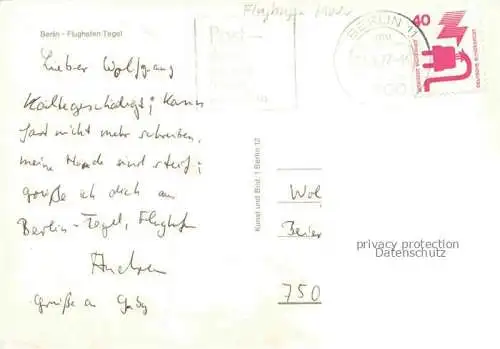 Flugzeuge
Berlin - Flughafen Tegel
Post-
BERLIN 11
40
DEUTSCHE BUNDESPOST
Lieber Wolfgang
Kältegeschädigt; kann
fast nicht mehr schreiben.
meine Hände sind steif;
grüße ich dich am
Berlin-Tegel, Flughafen
Andreas
Grüße an Gaby
Kunst und Bild · 1 Berlin 12
Wol
Beier
privacy protection
Datenschutz
750